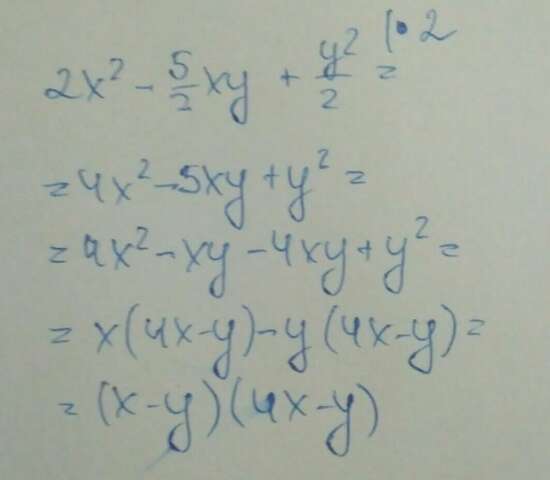 2x² - 5/2 xy + y²/2 = |·2
= 4x² - 5xy + y² =
= 4x² - xy - 4xy + y² =
= x(4x-y) - y(4x-y) =
= (x-y)(4x-y)